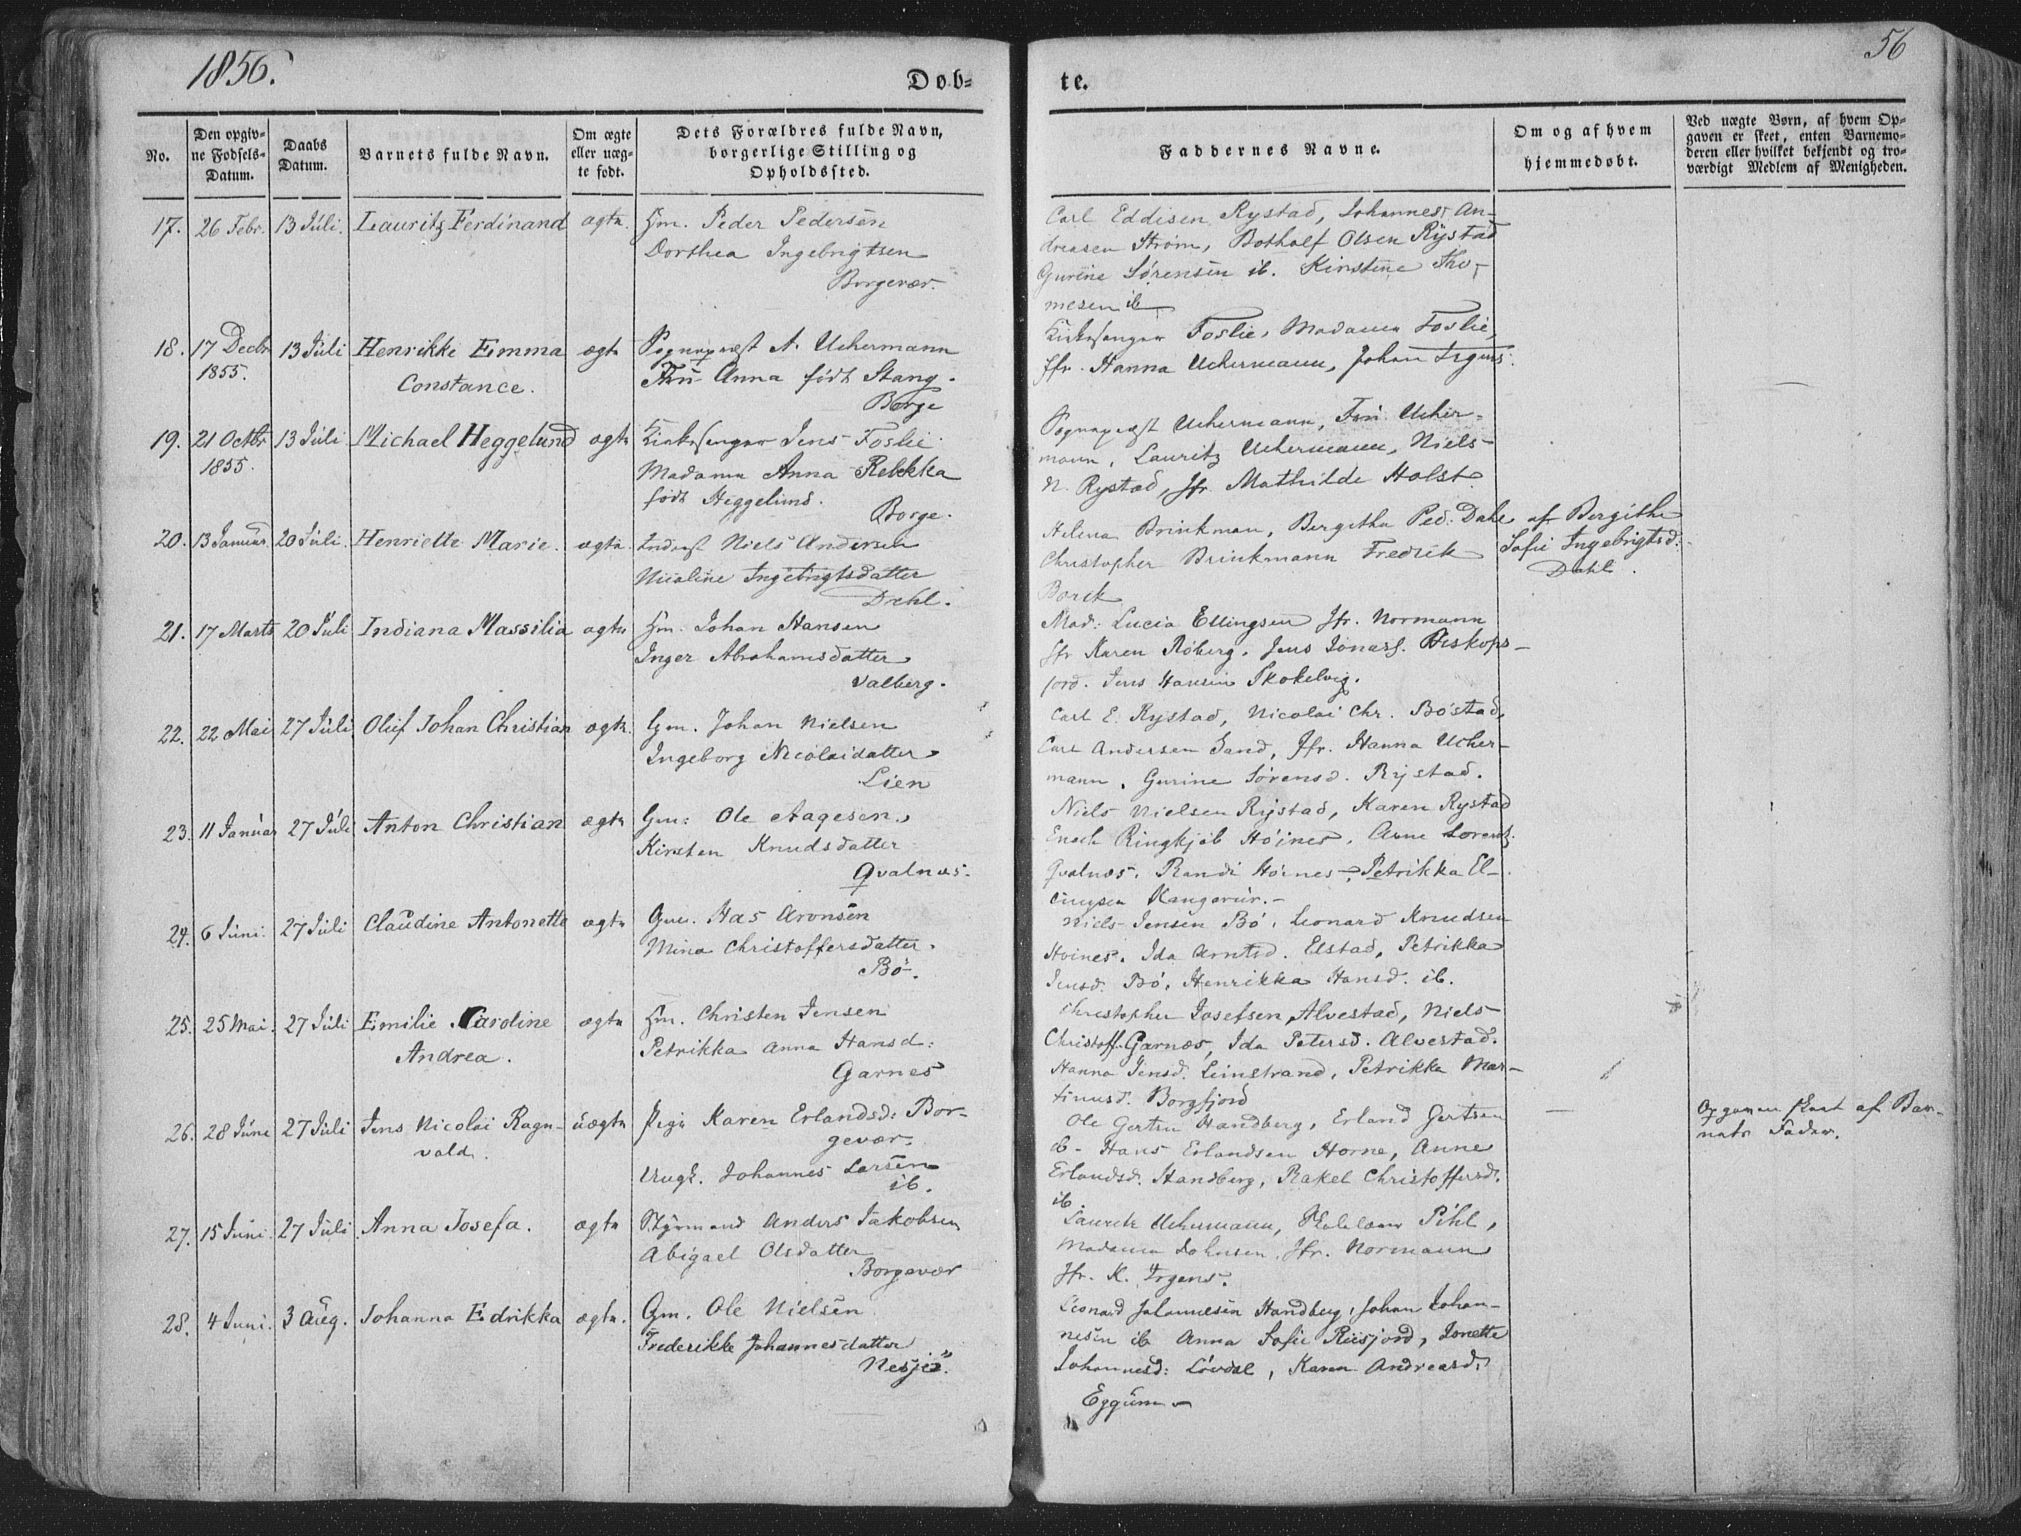 1856.
56
Døb-
te.
No.
Den opgiv-
ne Fødsels-
Datum.
Daabs
Datum.
Barnets fulde Navn.
Om ægte
eller uæg-
te født.
Dets Forældres fulde Navn,
borgerlige Stilling og
Opholdssted.
Faddernes Navne.
Om og af hvem
hjemmedøbt.
Ved uægte Børn, af hvem Op-
gaven er skeet, enten Barnemo-
deren eller hvilket bekjendt og tro-
værdigt Medlem af Menigheden.
17. 26 Febr. 13 Juli. Lauritz Ferdinand ægte. Gm. Peder Pedersen
Dorthea Ingebrigtsen
Borgevær.
Carl Eddisen Rystad, Johannes An-
dreasen Strøm, Botholf Olsen Rystad
Gurine Sørensen ib. Kirstine Tho-
mesen ib
18. 17 Decbr 1855. 13 Juli Henrikke Emma
Constance.
ægte Sognepræst A. Uchermann
Fru Anna født Stang.
Borge
Kirkesanger Foslie, Madame Foslie,
Jfr. Hanna Uchermann, Johan Irgens.
19. 21 Octbr 1855. 13 Juli Michael Heggelund ægte Kirkesanger Jens Foslie
Madame Anna Rebekka
født Heggelund.
Borge.
Sognepræst Uchermann, Fru Ucher-
mann, Lauritz Uchermann, Niels
N. Rystad, Jfr. Mathilde Holst
20. 13 Januar 20 Juli. Henriette Marie. ægte. Inderst Niels Andersen
Nicoline Ingebrigtsdatter
Dahl.
Helena Brinkman, Bergitha Ped: Dahl
Christopher Brinkmann Fredrik
Borck
af Bergithe
Sofie Ingebrigtsd:
Dahl.
21. 17 Marts 20 Juli Indiana Massilia ægte Gm. Johan Hansen
Inger Abrahamsdatter
Valberg.
Mad: Lucia Ellingsen Jfr. Normann
Jfr Karen Røberg, Jens Jonass. Biskops-
jord. Jens Hansen Skokelvig.
22. 22 Mai 27 Juli Oluf Johan Christian ægte. Gm. Johan Nielsen
Ingeborg Nicolaidatter
Lien
Carl E. Rystad, Nicolai Chr. Bøstad,
Carl Andersen Sand, Jfr. Hanna Ucher-
mann, Gurine Sørensd. Rystad.
23. 11 Januar 27 Juli Anton Christian ægte Gm: Ole Aagesen.
Kirsten Knudsdatter
Qvalnæs.
Niels Nielsen Rystad, Karen Rystad
Enoch Ringkjøb Høines, Arne Lorentz.
Qvalnæs. Randi Høines, Petrikka El-
lingsen Kangerur.
24. 6 Juni. 27 Juli Claudine Antonette ægte Gm. Has Aronsen
Mina Christoffersdatter.
Bø.
Niels Jensen Bø, Leonard Knudsen
Høines. Ida Arntsd. Elstad, Petrikka
Jensd: Bø, Henrikka Hansd. ib.
25. 25 Mai. 27 Juli Emilie Caroline
Andrea.
ægte Gm. Christen Jensen
Petrikka Anna Hansd:
Garnes
Christopher Josefsen Alvestad, Niels
Christoff. Garnæs, Ida Petersd. Alvestad.
Hanna Jensd. Leinstrand, Petrikka Mar-
tinusd. Borgfjord
26. 28 June 27 Juli Jens Nicolai Ragn-
vald.
uægte Pige Karen Erlandsd: Bor-
gevær.
Ungk. Johannes Larsen
ib.
Ole Gertsen Handberg, Erland Gertsen
ib- Hans Erlandsen Horne, Anne
Erlandsd. Handberg, Rakel Christoffersd.
ib.
Opgaven skeet af Bar-
nets Fader.
27. 15 Juni. 27 Juli Anna Josefa. ægte Styrmand Anders Jakobsen
Abigael Olsdatter
Borgevær
Lauritz Uchermann, Skolelærer Pihl,
Madama Johnsen. Jfr. Normann
Jfr. K. Irgens.
28. 4 Juni. 3 Aug. Johanna Edrikka ægte. Gm. Ole Nielsen
Frederikke Johannesdatter
Nesje.
Leonard Johannesen Handberg, Johan Johan-
nesen ib Anna Sofie Riisjord, Jonette
Johannesd: Løvdal, Karen Andreasd:
Eggum